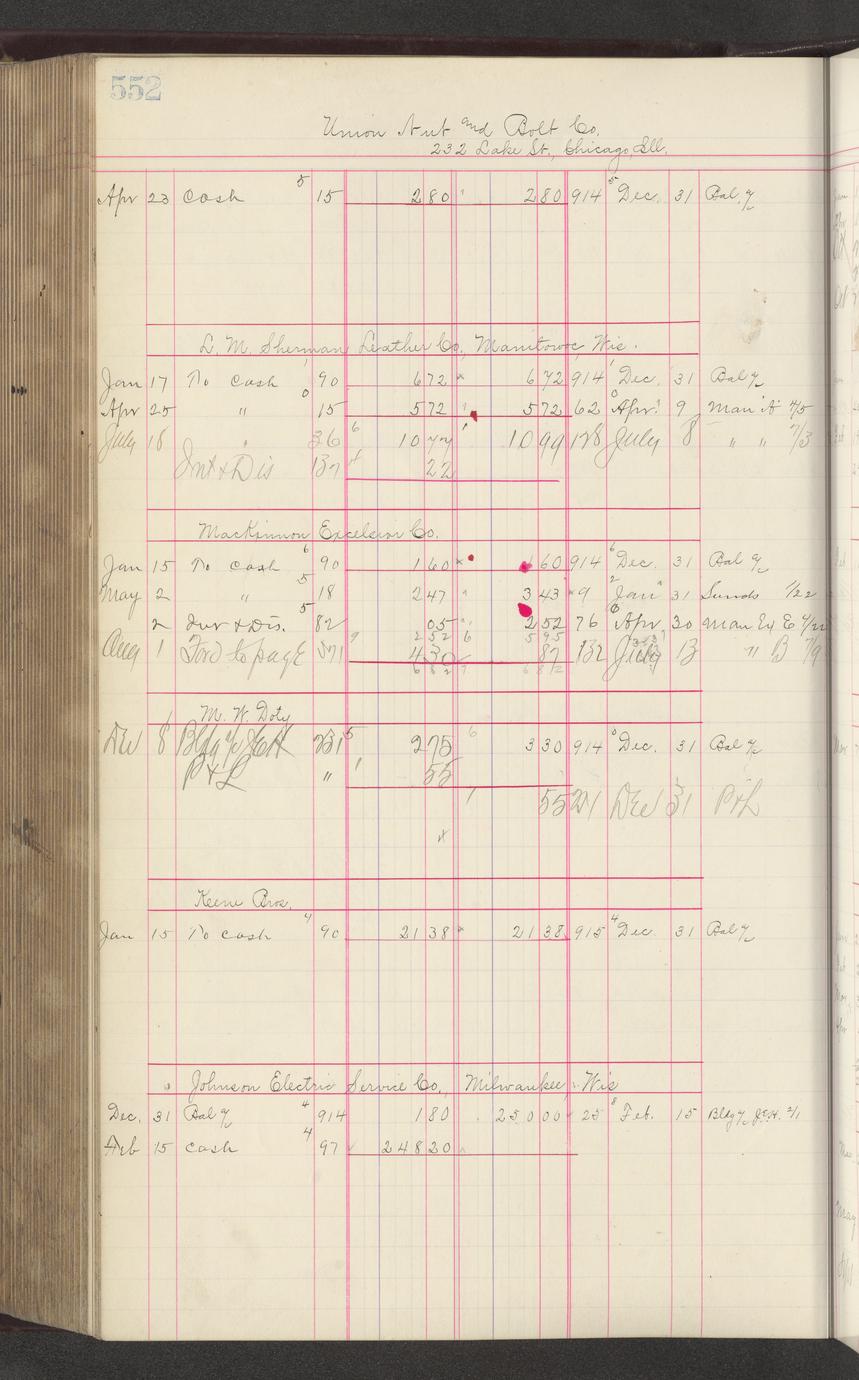 552
Union Nut and Bolt Co.
232 Lake St., Chicago, Ill.
Apr 23 Cash 5 15 280 280 914 5 Dec. 31 Bal. %
L. M. Sherman Leather Co., Manitowoc, Wis.
Jan 17 To cash 1 90 672 672 914 1 Dec. 31 Bal %
Apr 25 " 0 15 572 572 62 0 Apr. 9 Man "A" 4/5
July 18 " 36 6 1077 1099 128 July 8 " " 7/3
Int & Dis 137 22
MacKinnon Excelsior Co.
Jan 15 To cash 6 90 160 160 914 6 Dec. 31 Bal %
May 2 " 5 18 247 343 9 2 Jan 31 Sunds 1/22
2 Int & Dis. 5 82 05 252 76 6 Apr. 30 Man Ex E 4/22
252 595
Aug 1 Ford to page 571 9 430 87 132 July 13 " B 7/9
682 682
M. W. Doty
Dec 8 Bldg % JEH 231 5 275 330 914 0 Dec. 31 Bal %
P & L " 55
55 241 Dec 31 P & L
Keene Bros.
Jan 15 To cash 4 90 2138 2138 915 4 Dec. 31 Bal %
Johnson Electric Service Co., Milwaukee, Wis
Dec. 31 Bal % 4 914 180 25000 25 8 Feb. 15 Bldg % J.E.H. 2/1
Feb 15 cash 4 97 24820